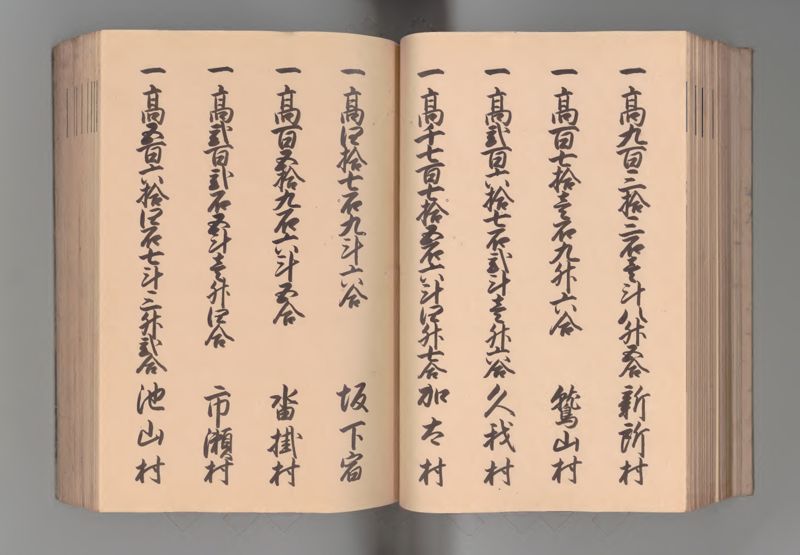 一 高九百三拾三石壱斗八升五合 新所村
一 高百七拾壱石九升六合 鷲山村
一 高弐百六拾七石弐斗壱升六合 久我村
一 高千七百七拾五石六斗四升七合 加太村
一 高四拾七石九斗六合 坂下宿
一 高百五拾九石六斗五合 沓掛村
一 高弐百弐石五斗壱升四合 市瀬村
一 高五百六拾四石七斗三升弐合 池山村